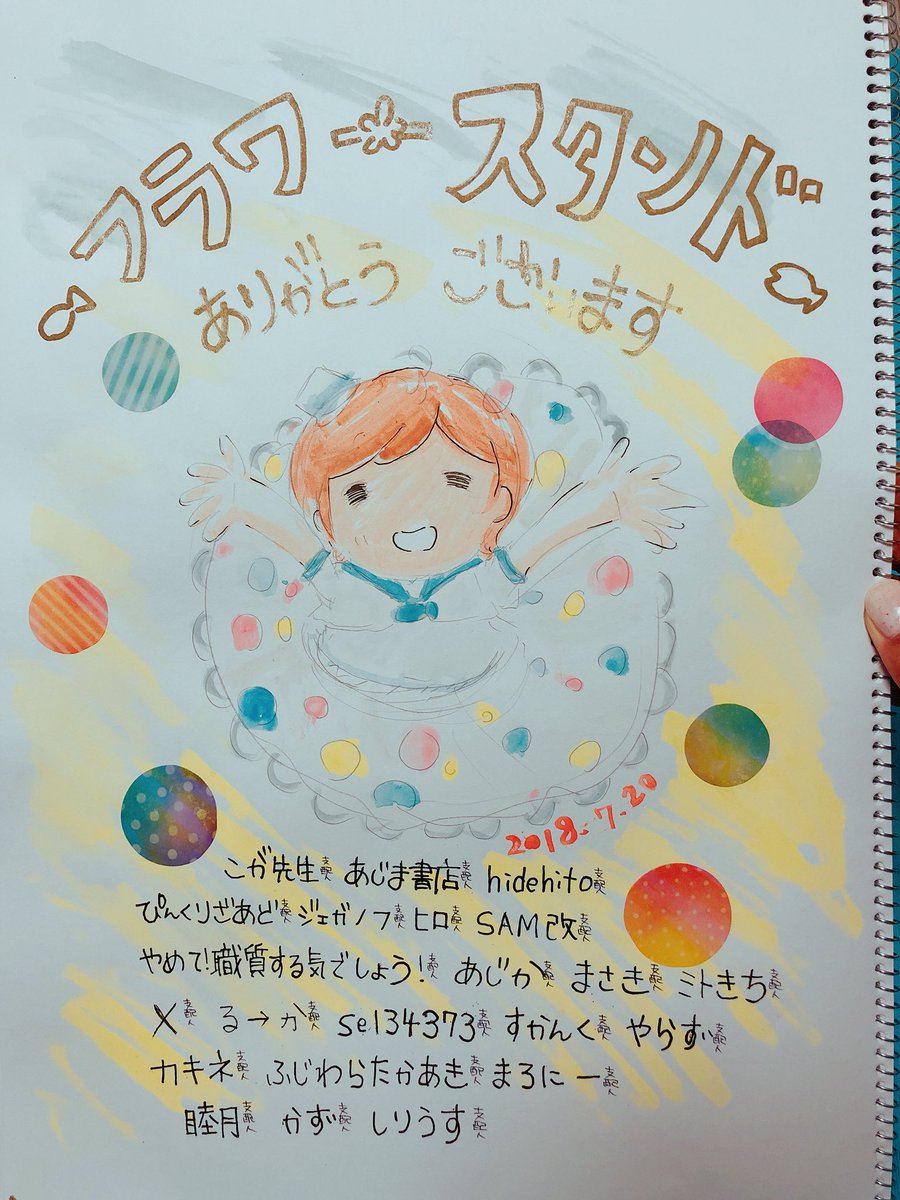 フラワースタンド
ありがとう ございます
2018.7.20
こが先生支配人 あじま書店支配人 hidehito支配人
ぴんくりざあど支配人 ジェガノフ支配人 ヒロ支配人 SAM改支配人
やめて!職質する気でしょう!支配人 あじか支配人 まさき支配人 ミトきち支配人
X支配人 る→か支配人 se134373支配人 すかんく支配人 やらずん支配人
カキネ支配人 ふじわらたかあき支配人 まろにー支配人
睦月支配人 かず支配人 しりうす支配人